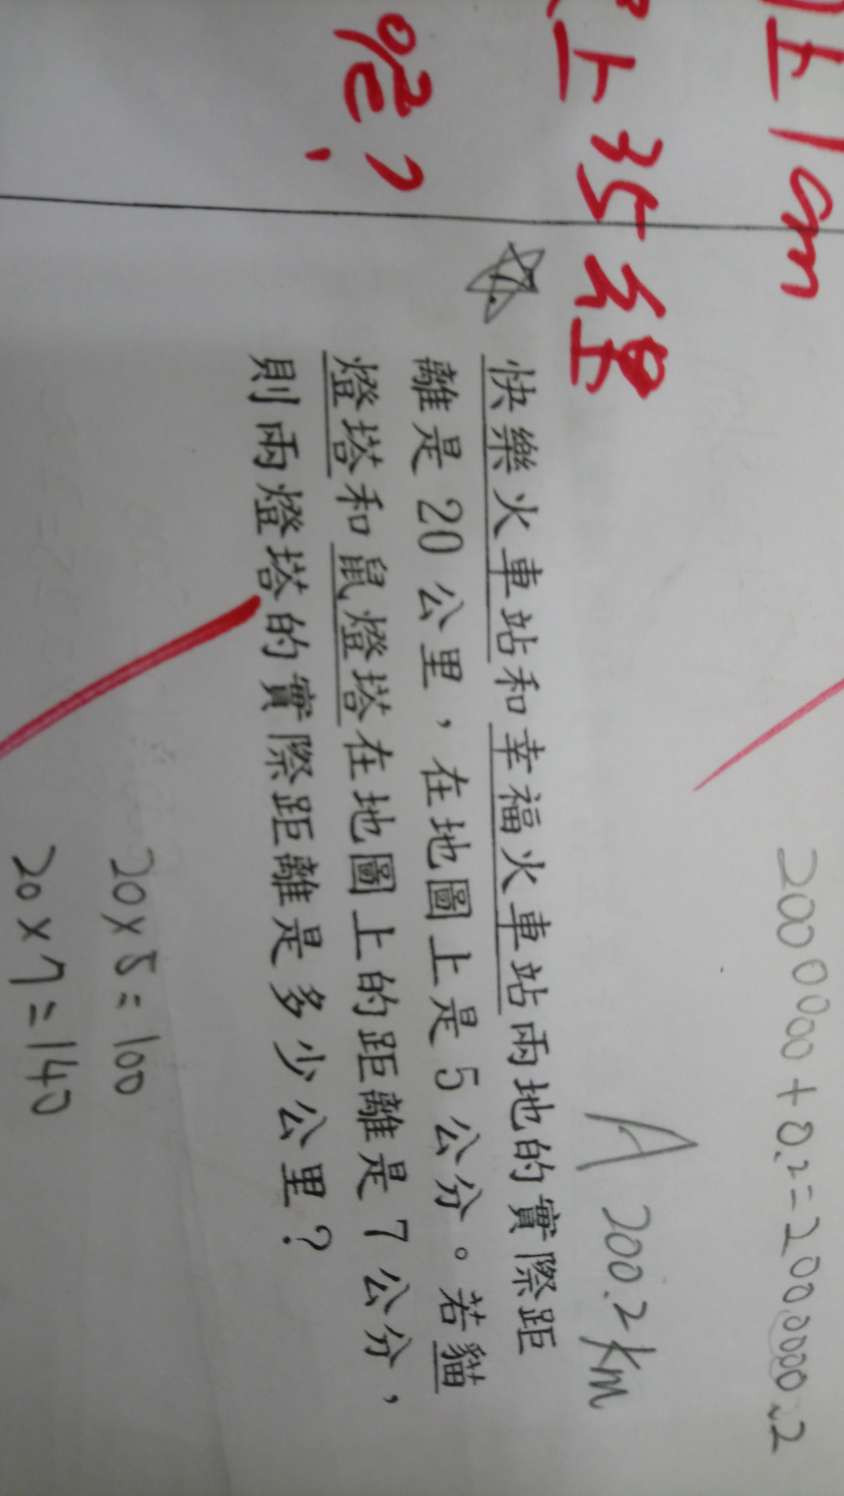 上1cm
上我縮
呢?
2000000+0.2=2000000.2
A 200.2km
快樂火車站和幸福火車站兩地的實際距
離是20公里,在地圖上是5公分。若貓
燈塔和鼠燈塔在地圖上的距離是7公分,
則兩燈塔的實際距離是多少公里?
20×5=100
20×7=140